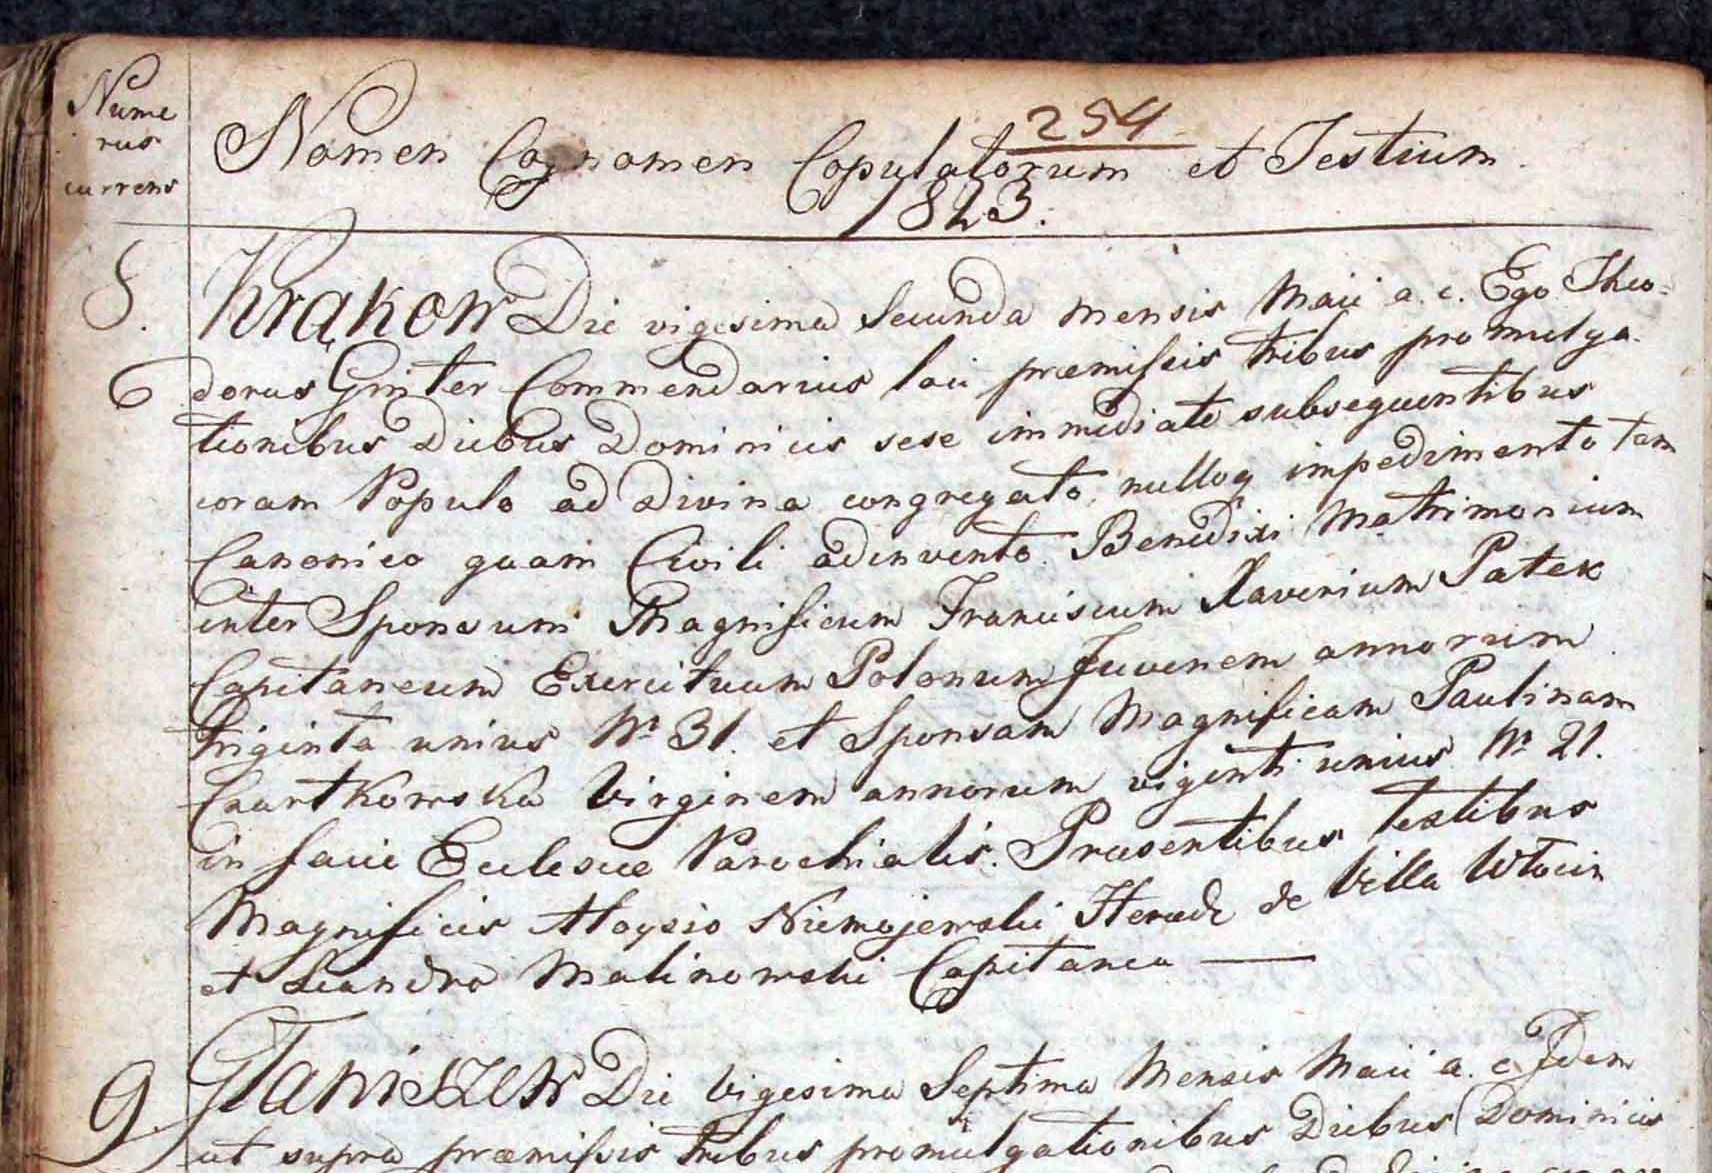 Nume
rus
currens
254
Nomen Cognomen Copulatorum et Testium.
1823.
8. Krąkow Die vigesima Secunda Mensis Maii a. c. Ego Theo=
6 dorus Ginter Commendarius loci præmissis tribus promulga-
tionibus Diebus Dominicis sese immediate subsequentibus
coram Populo ad Divina congregato, nulloq impedimento tam
Canonico quam Civili adinvento. Benedixi Matrimonium
inter Sponsum Magnificum Franciscum Xaverium Patek
Capitaneum Exercituum Polonum Juvenem annorum
triginta unius Nr 31. et Sponsam Magnificam Paulinam
Czartkowska Virginem annorum viginti unius Nr 21.
in facie Eclesiæ Parochialis. Præsentibus testibus
Magnificis Aloysio Niemojewski Herede de Villa Wtocin
et Leandro Malinowski Capitaneo —
9. Staniszew Die Vigesima Septima Mensis Maii a. c. Idem
ut supra præmissis tribus promulgationibus Diebus Dominicis